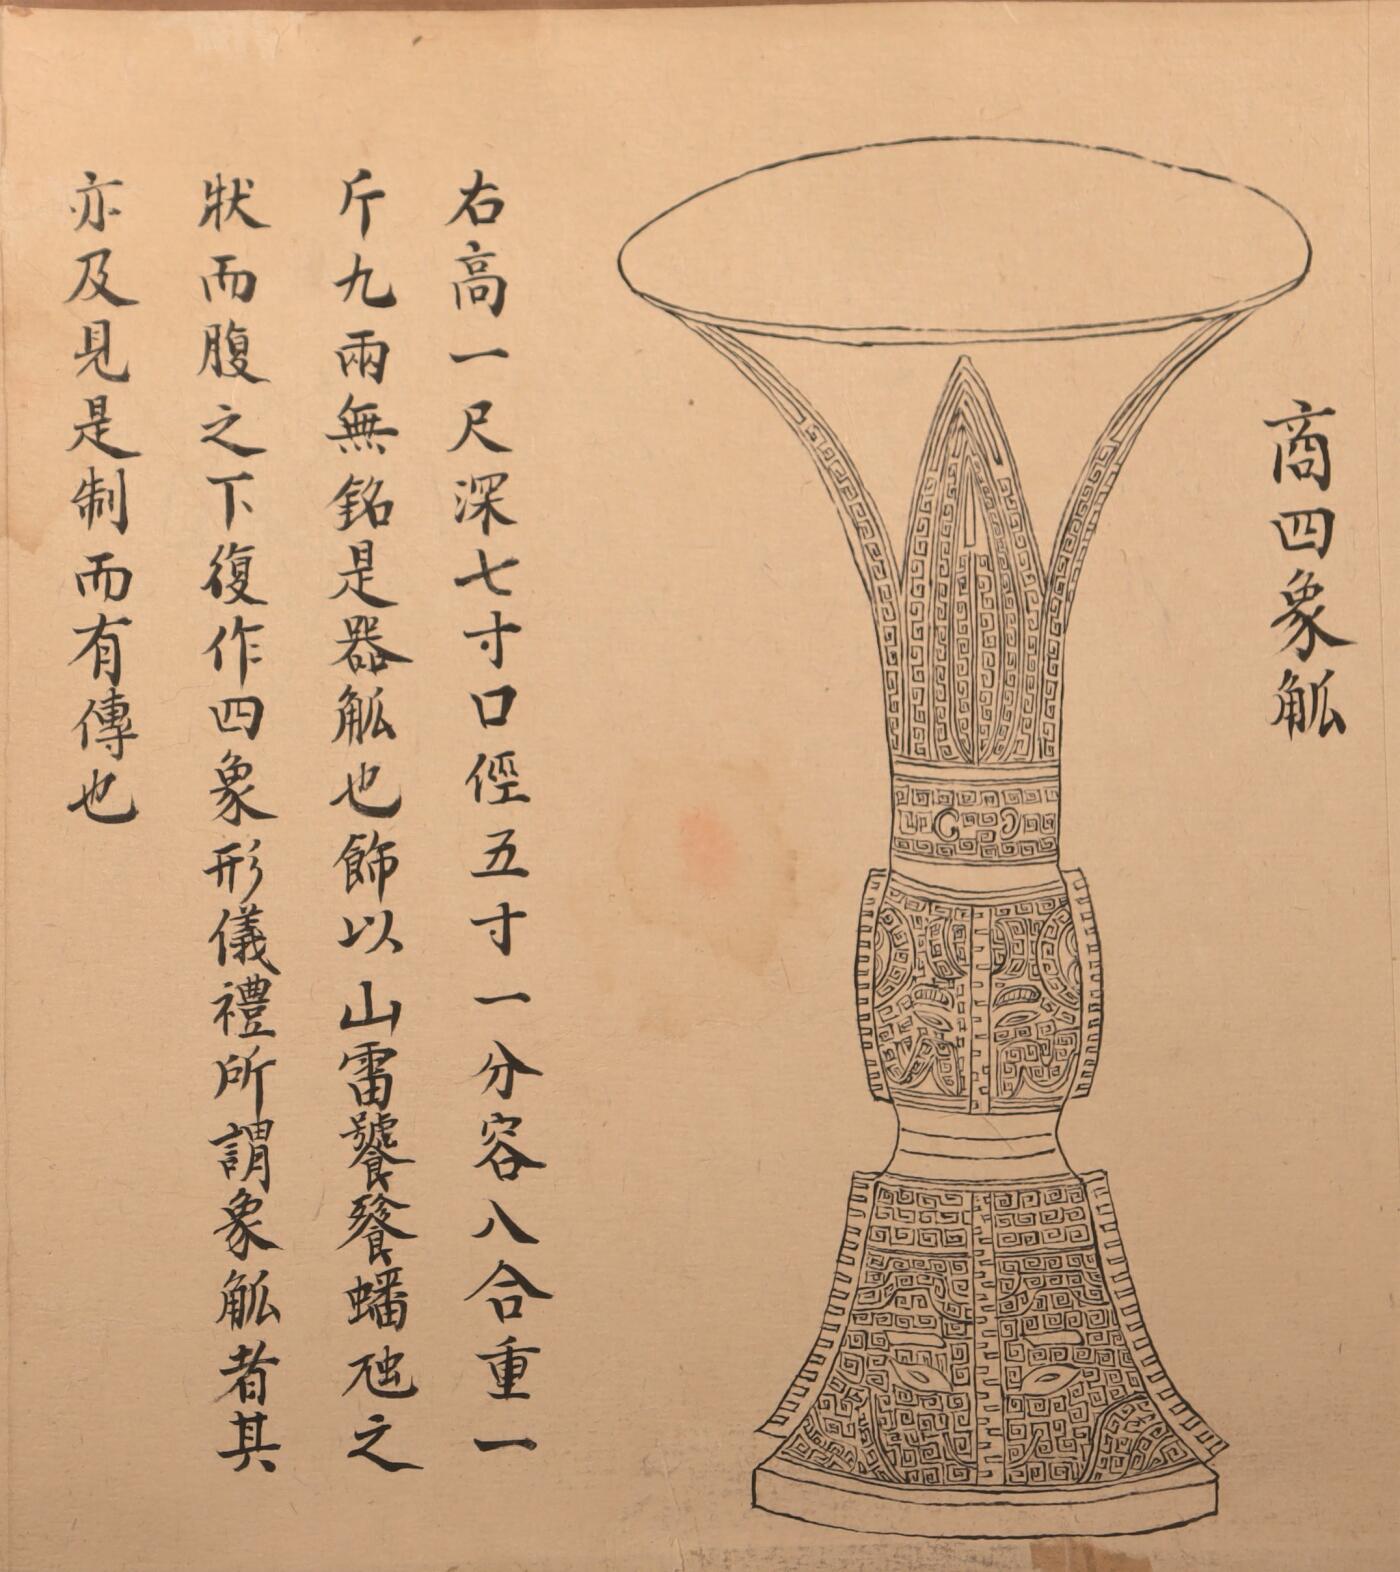 商四象觚
右高一尺深七寸口徑五寸一分容八合重一
斤九兩無銘是器觚也飾以山雷饕餮蟠虬之
狀而腹之下復作四象形儀禮所謂象觚者其
亦及見是制而有傳也